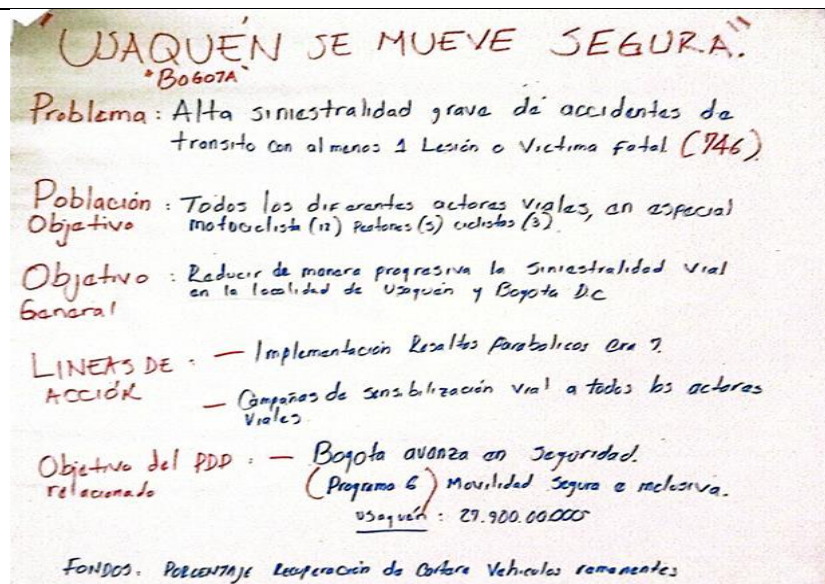 "USAQUÉN SE MUEVE SEGURA."
"BOGOTA"
Problema: Alta siniestralidad grave de accidentes de
transito con al menos 1 Lesión o Victima fatal (746)
Población : Todos los diferentes actores viales, en especial
Objetivo motociclista (12) Peatones (5) ciclistas (3)
Objetivo : Reducir de manera progresiva la siniestralidad vial
General en la localidad de Usaquén y Bogota D.C
LINEAS DE : — Implementación Resaltos Parabolicos Cra 7.
ACCIÓN
— Campañas de sensibilización vial a todos los actores
Viales.
Objetivo del PDD : — Bogota avanza en Seguridad.
relacionado (Programa 6) Movilidad Segura e inclusiva.
Usaquén : 27.900.00.000
FONDOS. PORCENTAJE Recuperación de Cartera Vehiculos remanentes